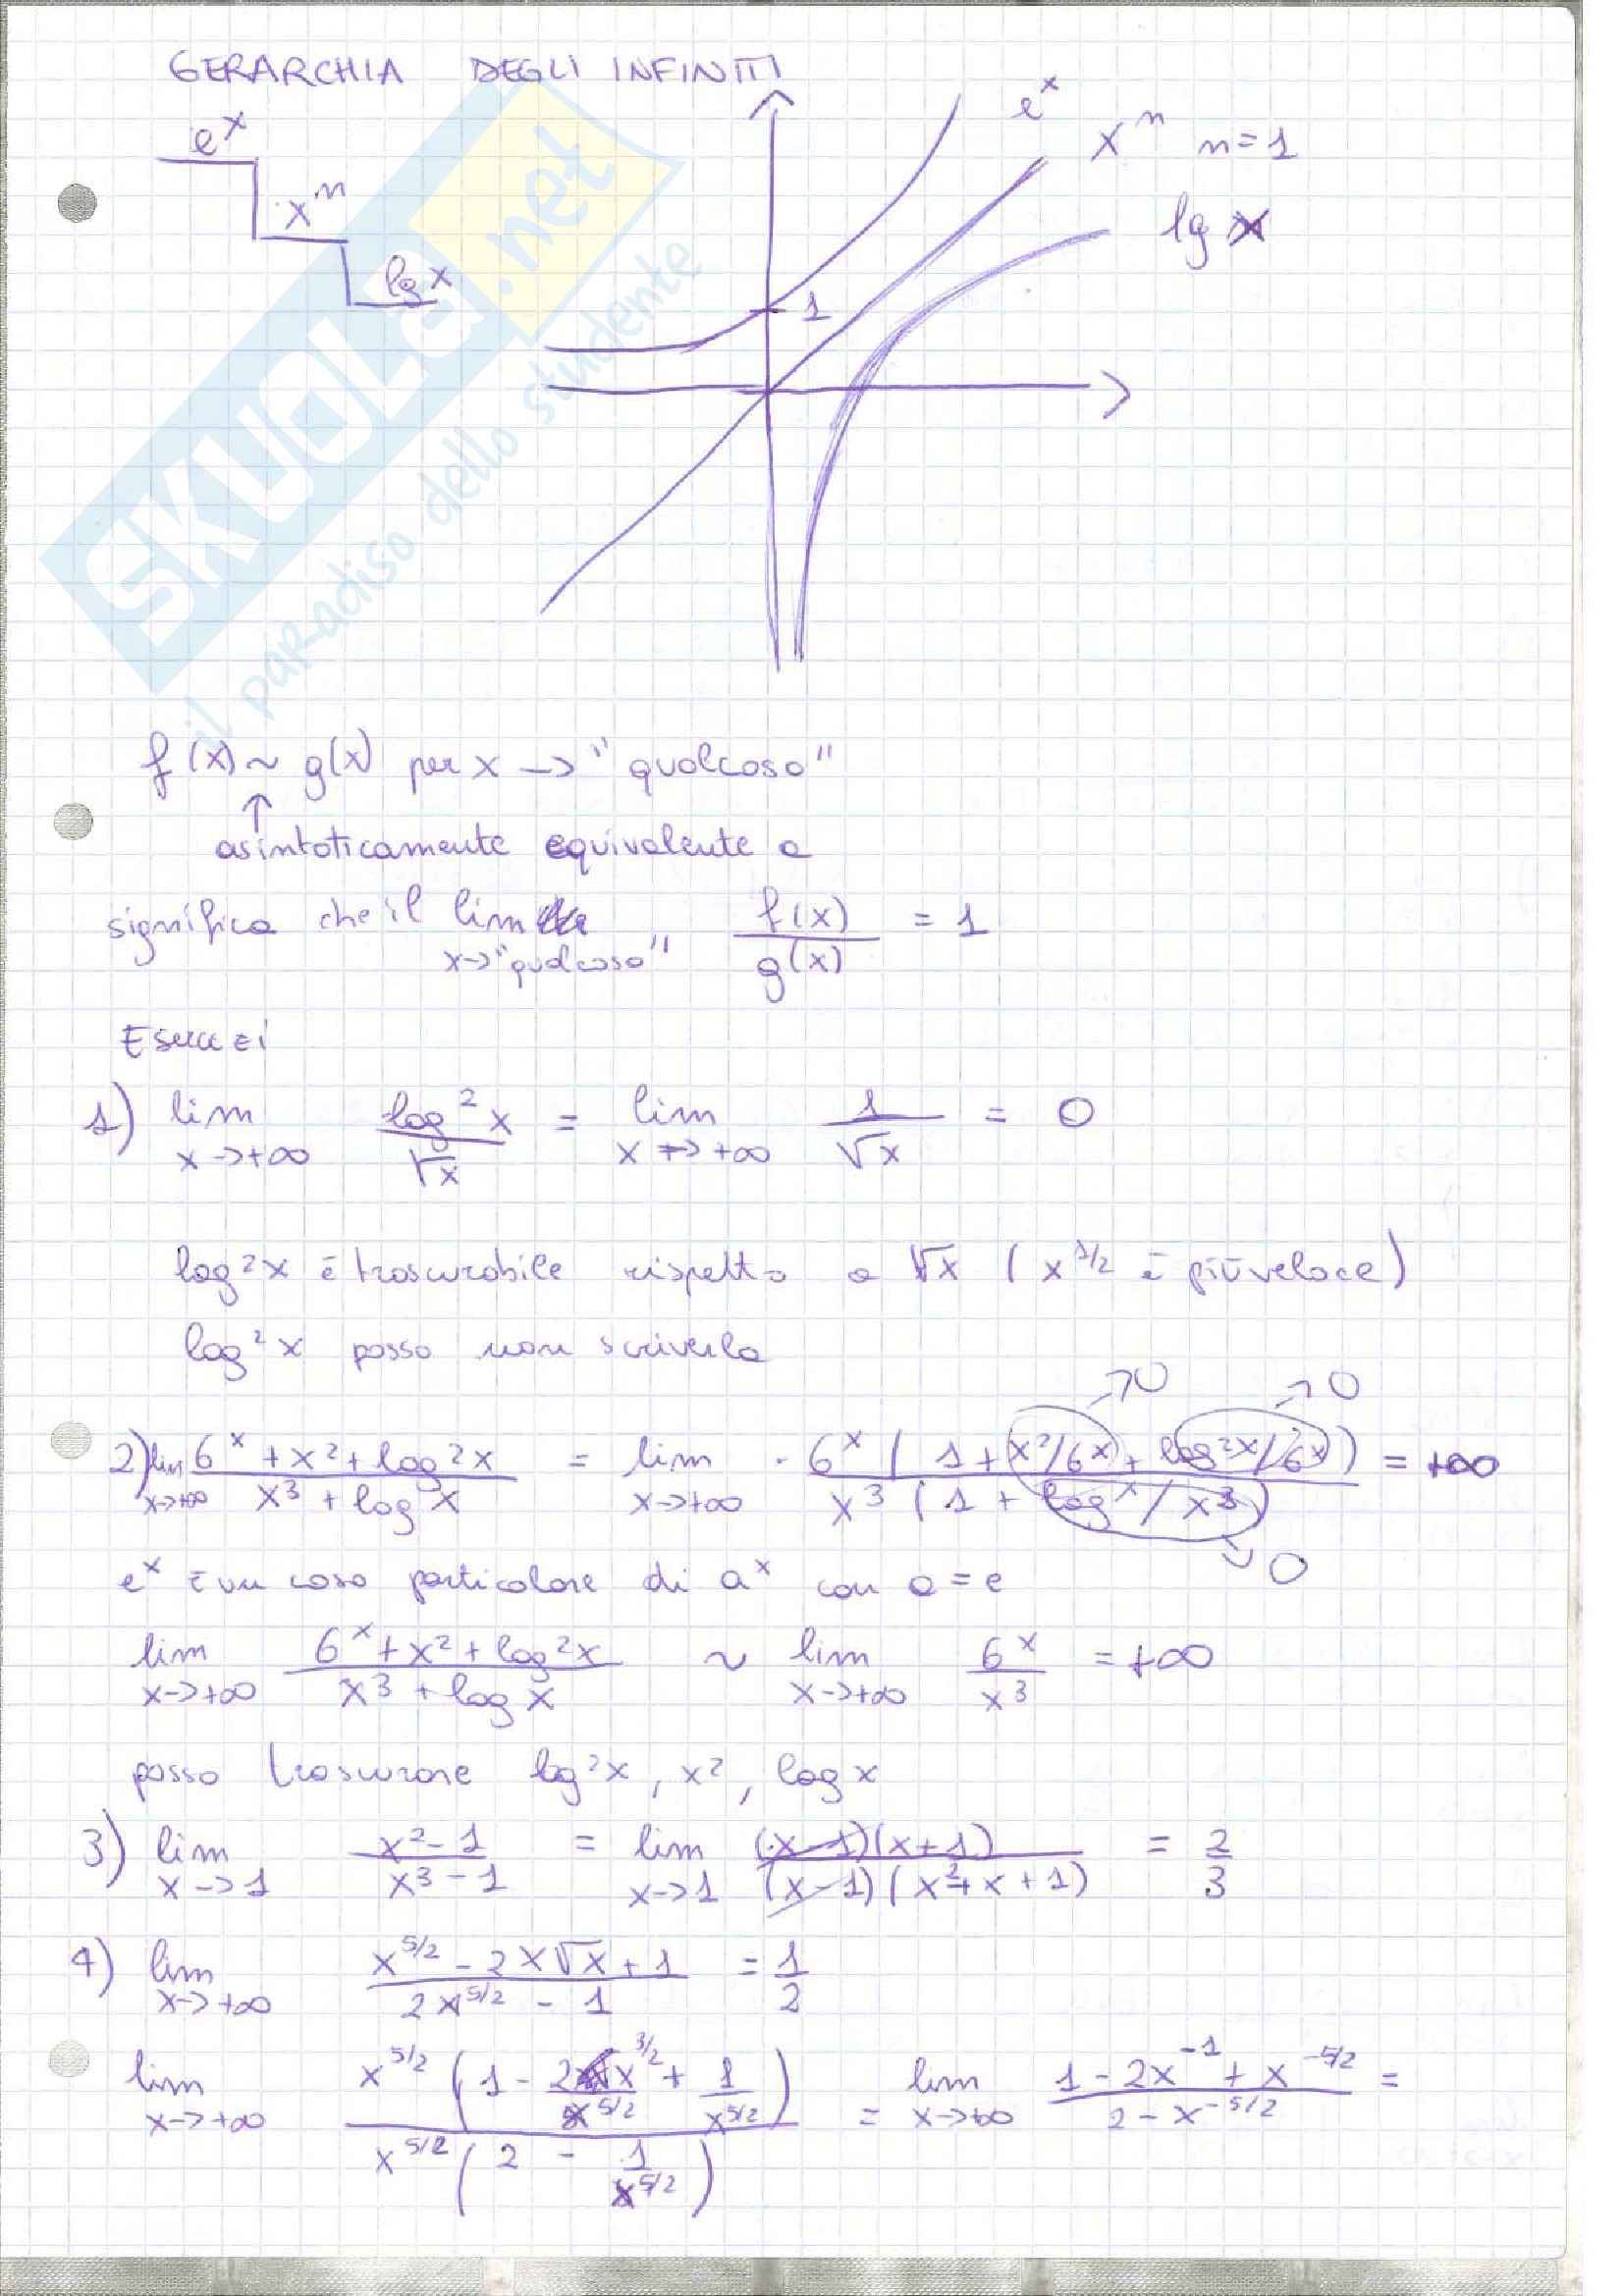 GERARCHIA DEGLI INFINITI
e^x
x^n
lg x
e^x
x^n n=1
lg x
1
SKUOLA.net
il paradiso dello studente
f(x) ~ g(x) per x -> "qualcosa"
↑
asintoticamente equivalente a
significa che il lim x->"qualcosa" f(x)/g(x) = 1
Esercizi
1) lim x->+∞ log²x/√x = lim x->+∞ 1/√x = 0
log²x è trascurabile rispetto a √x (x^1/2 è più veloce)
log²x posso non scriverla
->0 ->0
2) lim x->+∞ (6^x + x² + log²x)/(x³ + log x) = lim x->+∞ 6^x(1 + x²/6^x + log²x/6^x)/x³(1 + log x/x³) = +∞
->0
e^x è un caso particolare di a^x con a = e
lim x->+∞ (6^x + x² + log²x)/(x³ + log x) ~ lim x->+∞ 6^x/x³ = +∞
posso trascurare lg²x, x², log x
3) lim x->1 (x²-1)/(x³-1) = lim x->1 (x-1)(x+1)/(x-1)(x²+x+1) = 2/3
4) lim x->+∞ (x^5/2 - 2x√x + 1)/(2x^5/2 - 1) = 1/2
lim x->+∞ x^5/2(1 - 2x^3/2/x^5/2 + 1/x^5/2)/x^5/2(2 - 1/x^5/2) = lim x->+∞ (1 - 2x^-1 + x^-5/2)/(2 - x^-5/2) =